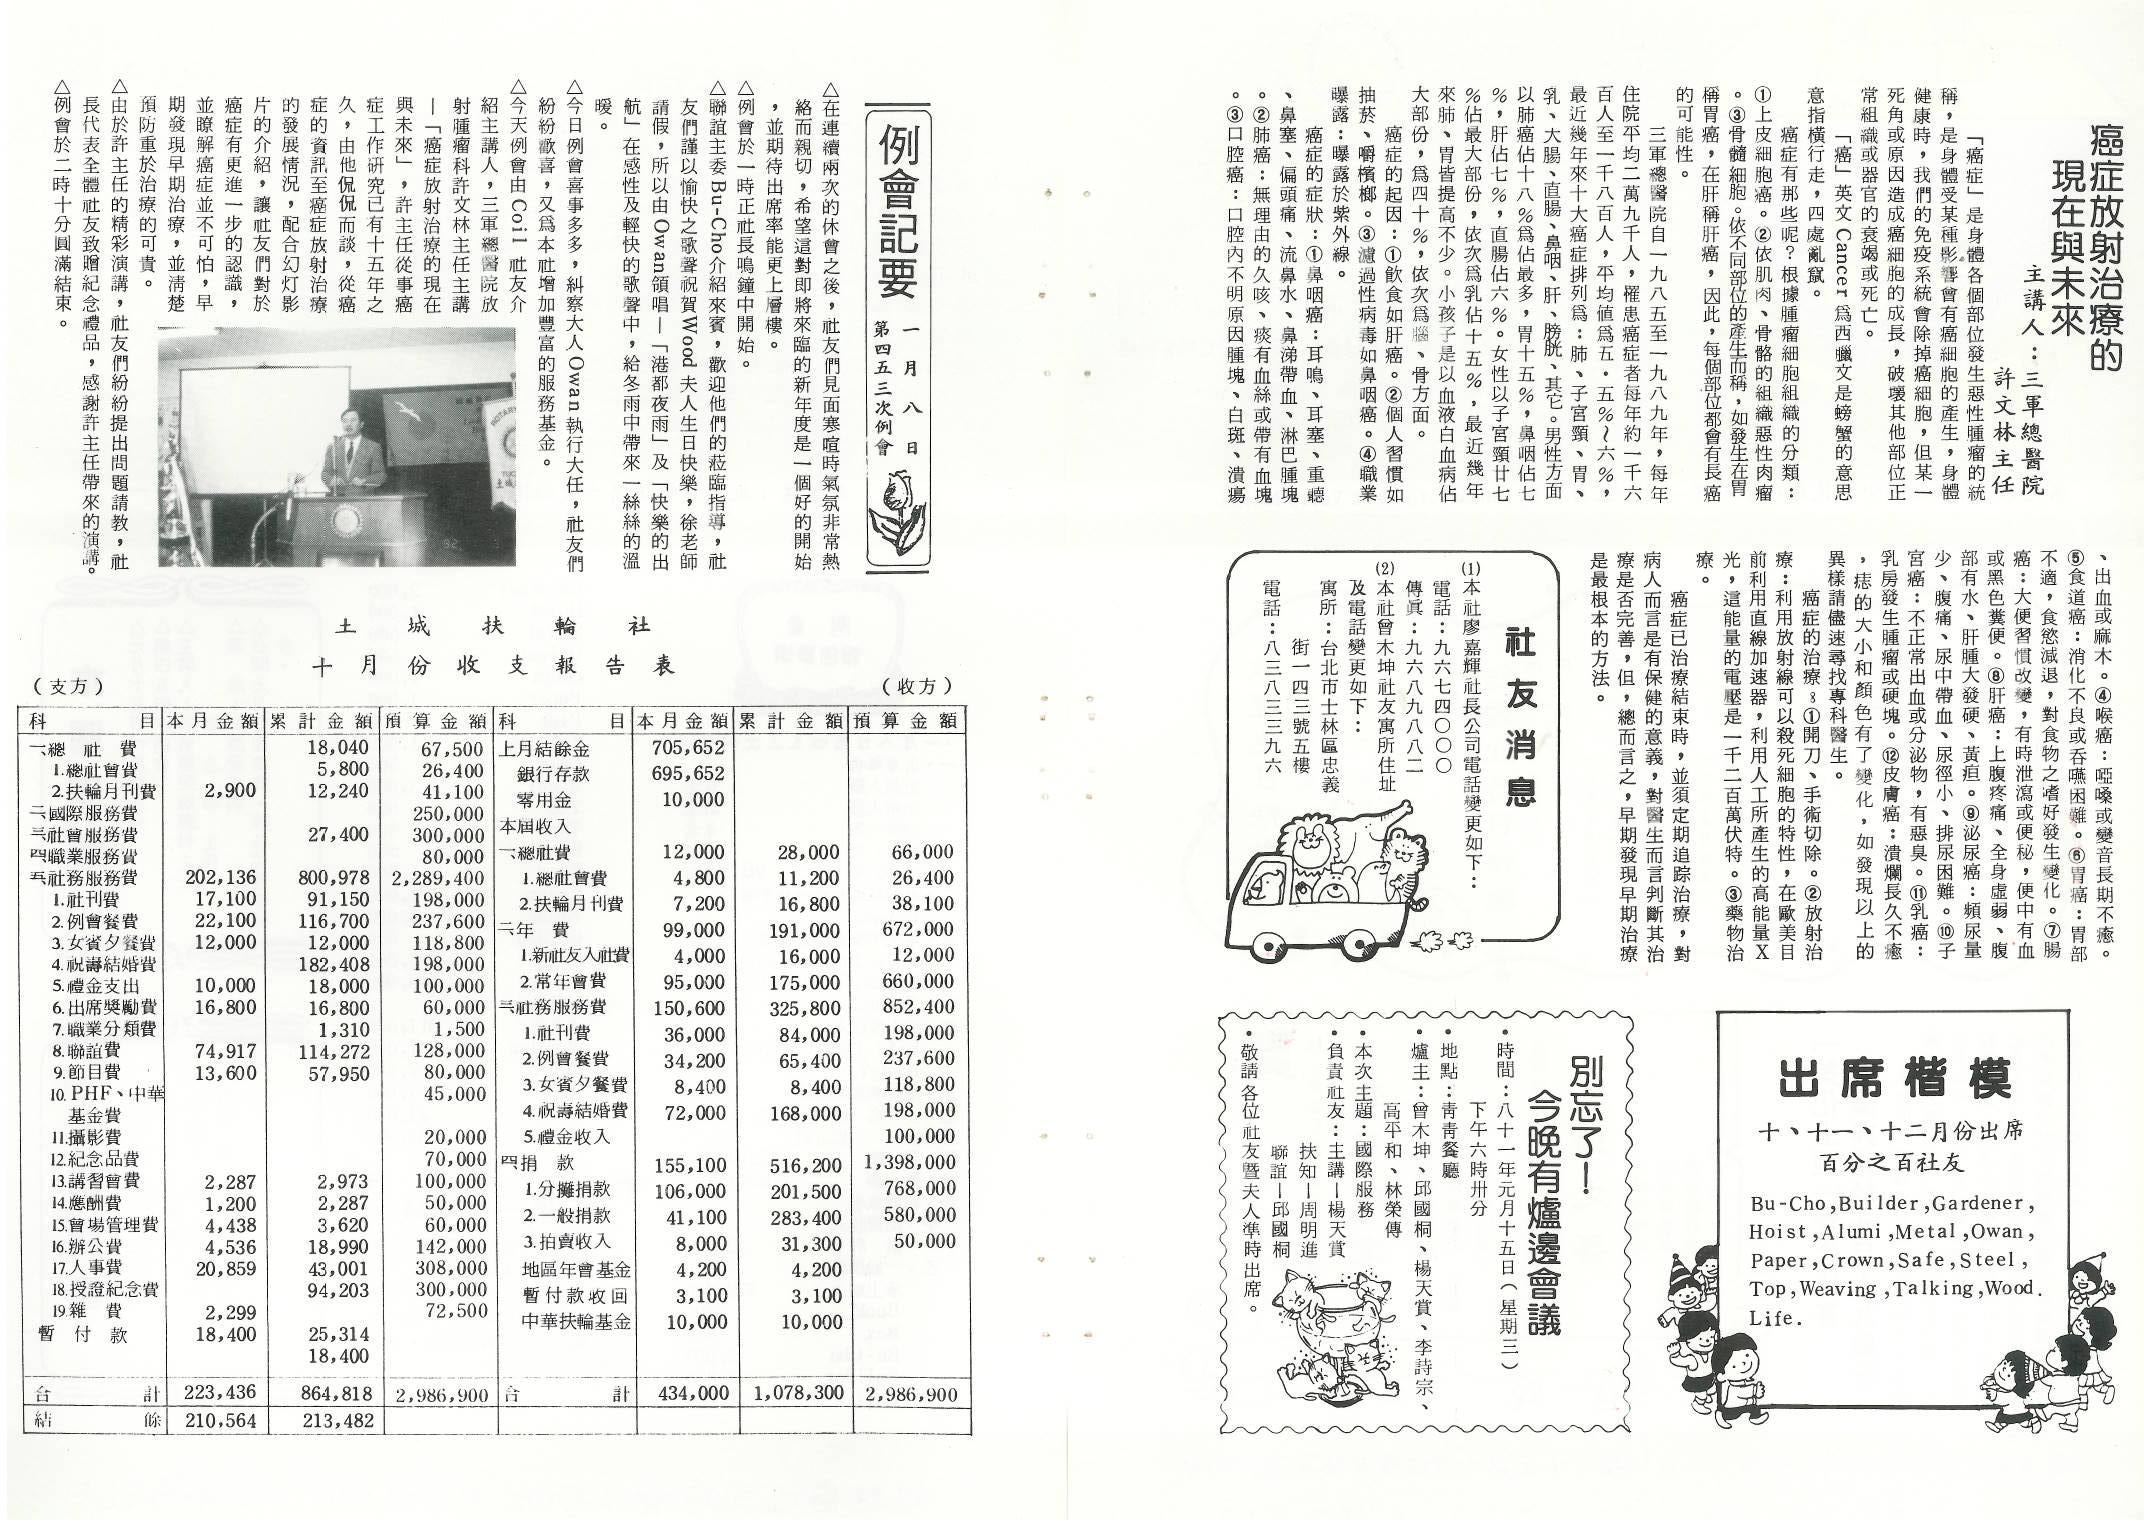 癌症放射治療的
現在與未來
主講人：三軍總醫院
許文林主任
「癌症」是身體各個部位發生惡性腫瘤的統
稱，是身體受某種影響會有癌細胞的產生，身體
健康時，我們的免疫系統會除掉癌細胞，但某一
死角或原因造成癌細胞的成長，破壞其他部位正
常組織或器官的衰竭或死亡。
「癌」英文Cancer為西臘文是螃蟹的意思
意指橫行走，四處亂竄。
癌症有那些呢？根據腫瘤細胞組織的分類：
①上皮細胞癌。②依肌肉、骨骼的組織惡性肉瘤
。③骨髓細胞。依不同部位的產生而稱，如發生在胃
稱胃癌，在肝稱肝癌，因此，每個部位都會有長癌
的可能性。
三軍總醫院自一九八五至一九八九年，每年
住院平均二萬九千人，罹患癌症者每年約一千六
百人至一千八百人，平均値為五．五％～六％，
最近幾年來十大癌症排列為：肺、子宮頸、胃、
乳、大腸、直腸、鼻咽、肝、膀胱、其它。男性方面
以肺癌佔十八％為佔最多，胃十五％，鼻咽佔七
％，肝佔七％，直腸佔六％。女性以子宮頸廿七
％佔最大部份，依次為乳佔十五％，最近幾年
來肺、胃皆提高不少。小孩子是以血液白血病佔
大部份，為四十％，依次為腦、骨方面。
癌症的起因：①飲食如肝癌。②個人習慣如
抽菸、嚼檳榔。③濾過性病毒如鼻咽癌。④職業
曝露：曝露於紫外線。
癌症的症狀：①鼻咽癌：耳鳴、耳塞、重聽
、鼻塞、偏頭痛、流鼻水、鼻涕帶血、淋巴腫塊
。②肺癌：無理由的久咳、痰有血絲或帶有血塊
。③口腔癌：口腔內不明原因腫塊、白斑、潰瘍
、出血或麻木。④喉癌：啞嗓或變音長期不癒。
⑤食道癌：消化不良或吞嚥困難。⑥胃癌：胃部
不適，食慾減退，對食物之嗜好發生變化。⑦腸
癌：大便習慣改變，有時泄瀉或便秘，便中有血
或黑色糞便。⑧肝癌：上腹疼痛、全身虛弱、腹
部有水、肝腫大發硬、黃疸。⑨泌尿癌：頻尿量
少、腹痛、尿中帶血、尿徑小、排尿困難。⑩子
宮癌：不正常出血或分泌物，有惡臭。⑪乳癌：
乳房發生腫瘤或硬塊。⑫皮膚癌：潰爛長久不癒
，痣的大小和顏色有了變化，如發現以上的
異樣請儘速尋找專科醫生。
癌症的治療：①開刀、手術切除。②放射治
療：利用放射線可以殺死細胞的特性，在歐美目
前利用直線加速器，利用人工所產生的高能量X
光，這能量的電壓是一千二百萬伏特。③藥物治
療。
癌症已治療結束時，並須定期追踪治療，對
病人而言是有保健的意義，對醫生而言判斷其治
療是否完善，但，總而言之，早期發現早期治療
是最根本的方法。
社友消息
(1)本社廖嘉輝社長公司電話變更如下：
電話：九六七四〇〇〇
傳眞：九六八九八八二
(2)本社曾木坤社友寓所住址
及電話變更如下：
寓所：台北市士林區忠義
街一四三號五樓
電話：八三八三三九六
出席楷模
十、十一、十二月份出席
百分之百社友
Bu-Cho,Builder,Gardener,
Hoist,Alumi,Metal,Owan,
Paper,Crown,Safe,Steel,
Top,Weaving,Talking,Wood.
Life.
別忘了！
今晚有爐邊會議
・時間：八十一年元月十五日（星期三）
下午六時卅分
・地點：靑靑餐廳
・爐主：曾木坤、邱國桐、楊天賞、李詩宗、
高平和、林榮傳
・本次主題：國際服務
・負責社友：主講—楊天賞
扶知—周明進
聯誼—邱國桐
・敬請各位社友暨夫人準時出席。
例會記要
一月八日
第四五三次例會
△在連續兩次的休會之後，社友們見面寒喧時氣氛非常熱
絡而親切，希望這對即將來臨的新年度是一個好的開始
，並期待出席率能更上層樓。
△例會於一時正社長鳴鐘中開始。
△聯誼主委Bu-Cho介紹來賓，歡迎他們的蒞臨指導，社
友們謹以愉快之歌聲祝賀Wood夫人生日快樂，徐老師
請假，所以由Owan領唱—「港都夜雨」及「快樂的出
航」在感性及輕快的歌聲中，給冬雨中帶來一絲絲的溫
暖。
△今日例會喜事多多，糾察大人Owan執行大任，社友們
紛紛歡喜，又為本社增加豐富的服務基金。
△今天例會由Coil 社友介
紹主講人，三軍總醫院放
射腫瘤科許文林主任主講
—「癌症放射治療的現在
與未來」，許主任從事癌
症工作硏究已有十五年之
久，由他侃侃而談，從癌
症的資訊至癌症放射治療
的發展情況，配合幻灯影
片的介紹，讓社友們對於
癌症有更進一步的認識，
並瞭解癌症並不可怕，早
期發現早期治療，並淸楚
預防重於治療的可貴。
△由於許主任的精彩演講，社友們紛紛提出問題請教，社
長代表全體社友致贈紀念禮品，感謝許主任帶來的演講。
△例會於二時十分圓滿結束。
土城扶輪社
十月份收支報告表
（支方） （收方）
科目 本月金額 累計金額 預算金額 科目 本月金額 累計金額 預算金額
一、總社費 18,040 67,500 上月結餘金 705,652
1.總社會費 5,800 26,400 銀行存款 695,652
2.扶輪月刊費 2,900 12,240 41,100 零用金 10,000
二、國際服務費 250,000 本屆收入
三、社會服務費 27,400 300,000
四、職業服務費 80,000 一、總社費 12,000 28,000 66,000
五、社務服務費 202,136 800,978 2,289,400 1.總社會費 4,800 11,200 26,400
1.社刊費 17,100 91,150 198,000 2.扶輪月刊費 7,200 16,800 38,100
2.例會餐費 22,100 116,700 237,600 二、年費 99,000 191,000 672,000
3.女賓夕餐費 12,000 12,000 118,800 1.新社友入社費 4,000 16,000 12,000
4.祝壽結婚費 182,408 198,000
5.禮金支出 10,000 18,000 100,000 2.常年會費 95,000 175,000 660,000
6.出席獎勵費 16,800 16,800 60,000 三、社務服務費 150,600 325,800 852,400
7.職業分類費 1,310 1,500 1.社刊費 36,000 84,000 198,000
8.聯誼費 74,917 114,272 128,000 2.例會餐費 34,200 65,400 237,600
9.節目費 13,600 57,950 80,000 3.女賓夕餐費 8,400 8,400 118,800
10.PHF、中華 45,000
基金費 4.祝壽結婚費 72,000 168,000 198,000
11.攝影費 20,000 5.禮金收入 100,000
12.紀念品費 70,000 四、捐款 155,100 516,200 1,398,000
13.講習會費 2,287 2,973 100,000 1.分攤捐款 106,000 201,500 768,000
14.應酬費 1,200 2,287 50,000 2.一般捐款 41,100 283,400 580,000
15.會場管理費 4,438 3,620 60,000
16.辦公費 4,536 18,990 142,000 3.拍賣收入 8,000 31,300 50,000
17.人事費 20,859 43,001 308,000 地區年會基金 4,200 4,200
18.授證紀念費 94,203 300,000 暫付款收回 3,100 3,100
19.雜費 2,299 72,500 中華扶輪基金 10,000 10,000
暫付款 18,400 25,314
18,400
合計 223,436 864,818 2,986,900 合計 434,000 1,078,300 2,986,900
結餘 210,564 213,482